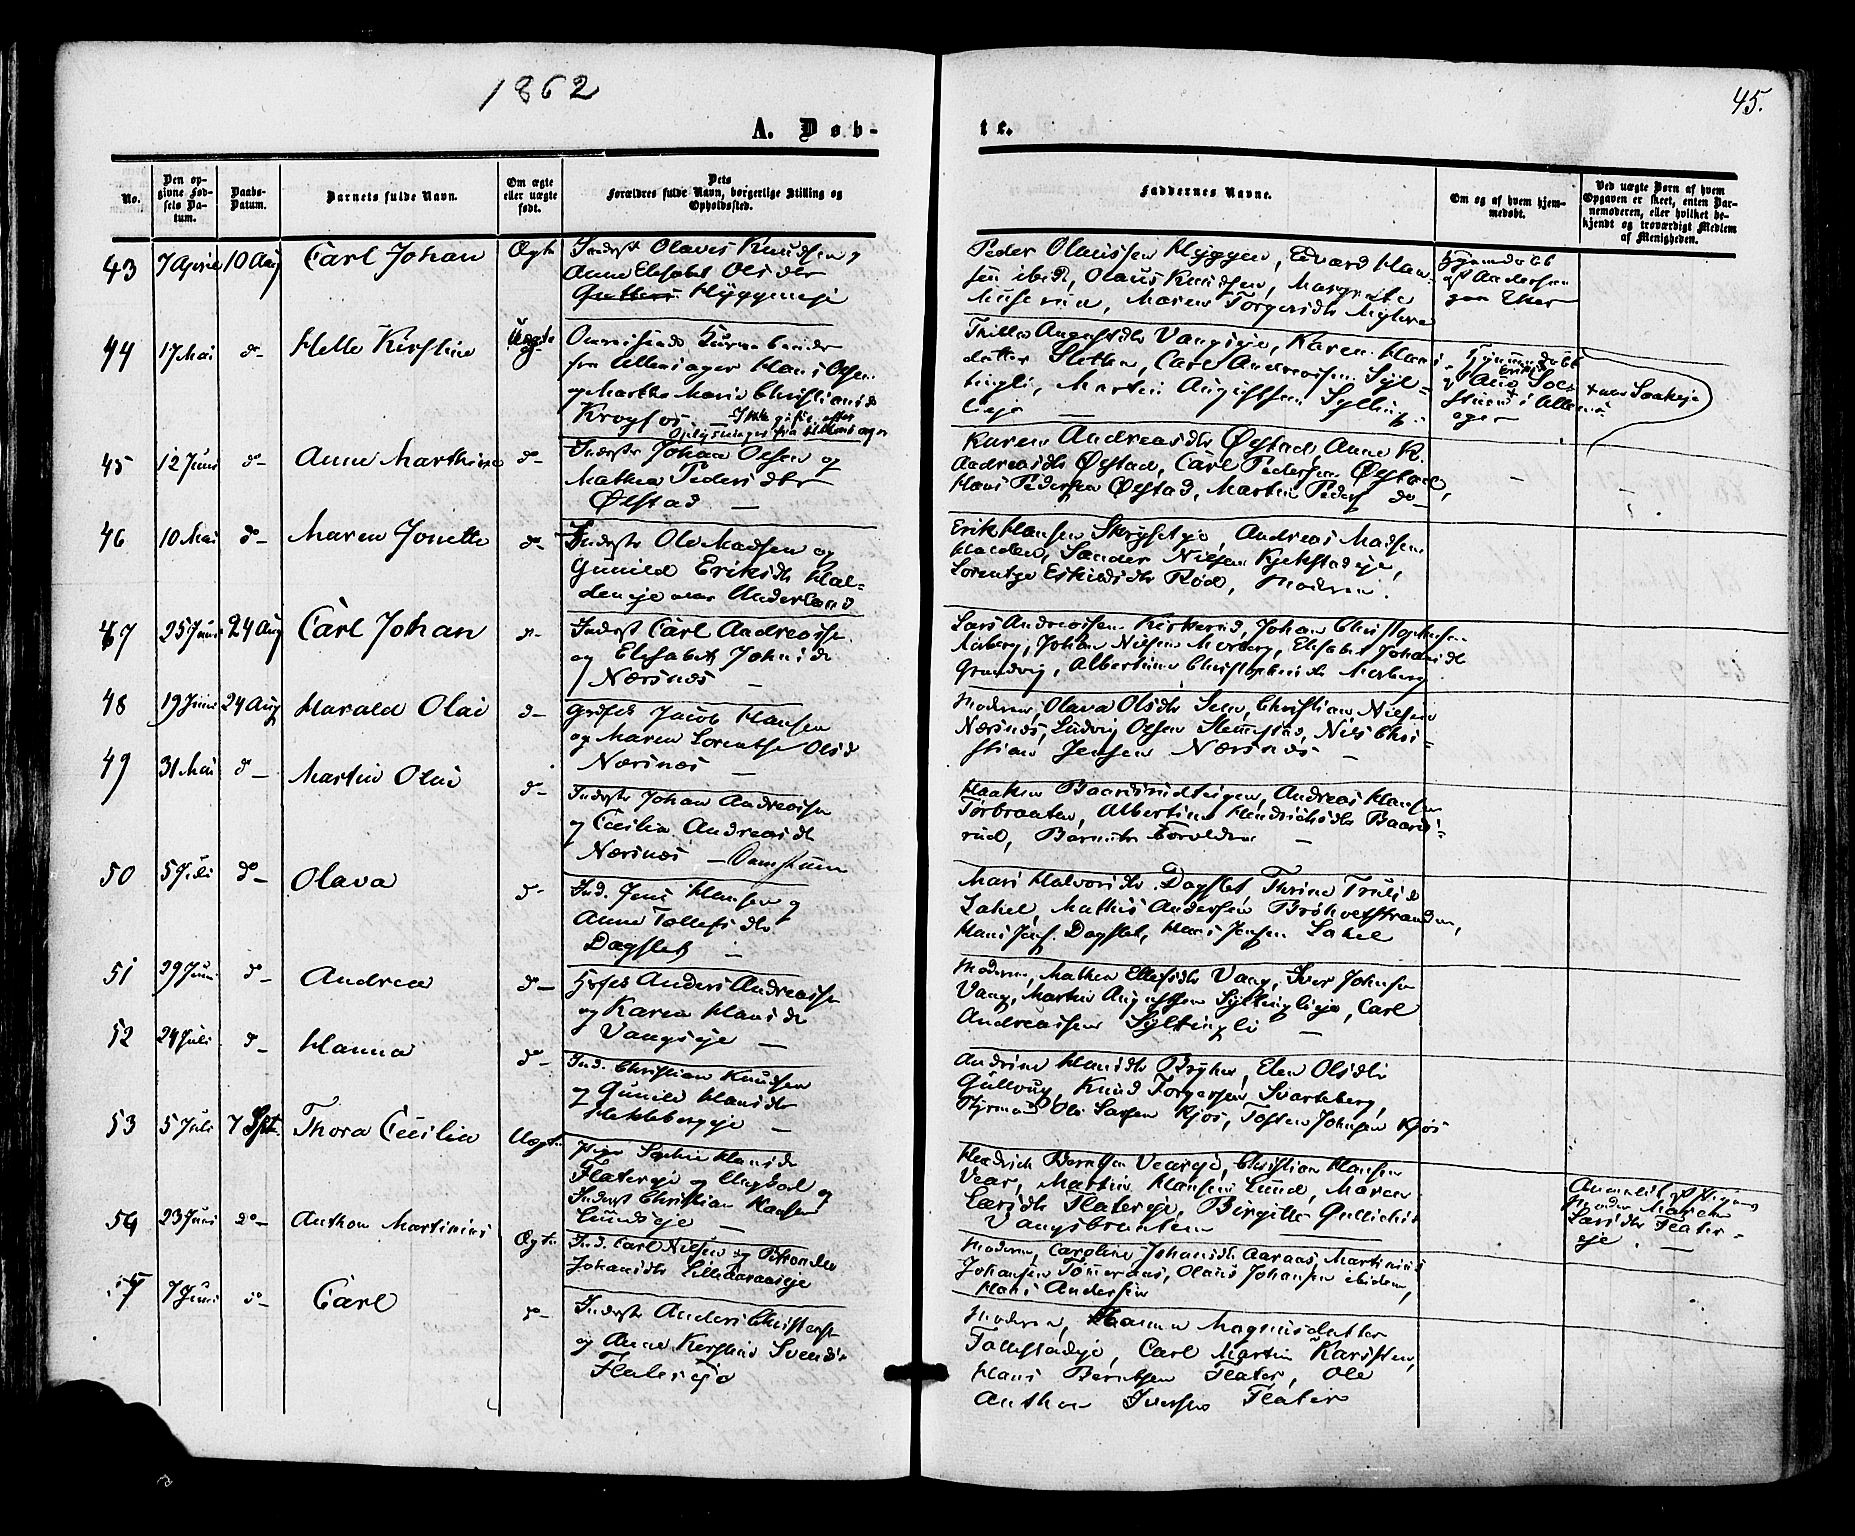 1862
45.
A. Døb-
te.
No.
Den op-
givne Fød-
sels Da-
tum.
Daabs-
Datum.
Barnets fulde Navn.
Om ægte
eller uægte
født.
Dets
Forældres fulde Navn, borgerlige Stilling og
Opholdssted.
Faddernes Navne.
Om og af hvem hjem-
medøbt.
Ved uægte Børn af hvem
Opgaven er skeet, enten Bar-
nemoderen, eller hvilket be-
kjendt og troværdigt Medlem
af Menigheden.
43 7 April 10 Aug Carl Johan Ægte
Inderst Olaves Knudsen og
Anne Elisabet Olsdtr
Hyggeneje
Peder Olaussen Hyggen, Edvard Han-
sen ibd, Olaus Knudsen, Margrethe
Maren Torgersdtr
Hjemdøbt
af Andersen
44 17 Mai do Helle Kirstine Uægte
Omreisende
fra Ullensager Hans Olsen
og Marthe Marie Christiansd
Krogfos. Ikke gifte efter
Oplysninger fra Ullensager
Augustdtr Vangseje, Karen Hans
datter Sletten, Carl Andreassen Syl-
tingli, Martin Augustsen Sylting-
lieje
Hjemmedøbt
i Ullens-
ager
45 12 Juni do Anne Marthine do
Inderst Johan Olsen og
Mathea Pedersdtr
Ølstad
Karen Andreasdtr Øvstad, Anne K.
Andreasdtr Øvstad, Carl Pedersen Øvstad,
Hans Pedersen Øvstad, Martin Peders do
46 10 Mai do Maren Jonette do
Inderst Ole Madsen og
Gunild Eriksdtr Hal-
deneje
Erik Hansen Skryseteje, Andreas Madsen
Halden, Sander Nilsen Kjekstadeje,
Lorentze Eskildsdtr Rød, Moderen.
47 25 Juni 24 Aug Carl Johan do
Inderst Carl Andreassen
og Elisabet Johnsd
Nærsnæs
Lars Andreassen Kirkerud, Johan Christophersen
Morberg, Johan Nilsen Morberg, Elisabet Johansd
Grundvig, Albertine Christophersdtr Morberg
48 19 Juni 24 Aug Harald Olai do
Jacob Hansen
og Maren Lorentse Olsd
Nærsnæs
Moderen, Olava Olsdtr Sem, Christian Nielsen
Nærsnæs, Ludvig Olsen Slemmestad, Nils Chri-
stian Jensen Nærsnæs
49 31 Mai do Martin Olai do
Inderst Johan Andreassen
og Cecilia Andreasd
Nærsnæs
Haaken Baardsrudteigen, Andreas Hansen
Torbraaten, Albertine Hendriksdtr Baards-
rud, Barnets Forældre
50 5 Juli do Olava do
Ind. Jens Hansen og
Anne Tollefsdtr
Dagslet
Mari Halvorsdtr Dagslet, Thrine Trulsd
Lahel, Mathis Andersen Bråhvetstranden,
Hans Jens. Dagslet, Hans Jensen Lahel
51 29 Juni do Andrea do
Anders Andreassen
og Karen Hansd
Vangseje
Moderen, Mathea Ellefsdtr Vang, Iver Johnsen
Vang, Martin Augustsen Syltinglieje, Carl
Andreassen Syltingli
52 24 Juli do Hanna do
Ind. Christian Knudsen
og Gunild Hansdtr
Hekleberqeje
Andrine Hansdtr Elen Olsdtr
Gulloug, Knud Torgersen Svarteberg,
Styrmand Ole Larsen Kjøs, Tosten Johnsen Kjøs
53 5 Juli 7 Spt. Thora Cecilia Uægte
Pige Sophie Hansd
Flatereje og Ungkarl og
Inderst Christian Hansen
Lundseje
Hendrik Berntsen Veareje, Christian Hansen
Vear, Martin Hansen Lund, Maren
Larsdtr Flatereje, Birgitte Gullichsd
Vangsbraaten
Anmeldt af Pigens
Moder Maren
Larsdtr Flater-
eje.
54 23 Juni do Anthon Martinius Ægte
Ind. Carl Nilsen og Petronelle
Johansdtr Lilleaaraaseje
Moderen, Caroline Johansdtr Aaraas, Martinius
Johansen Tømmeraas, Olaus Johansen ibidem,
Hans Andersen
55 7 Juni do Carl do
Inderst Anders Christens
og Anne Kirstine Svends
Flatereje
Moderen, Hanna Magnusdatter
Tollefstadeje, Carl Martin Karlsten,
Hans Berntsen Flater, Ole
Anthon Iversen Flater